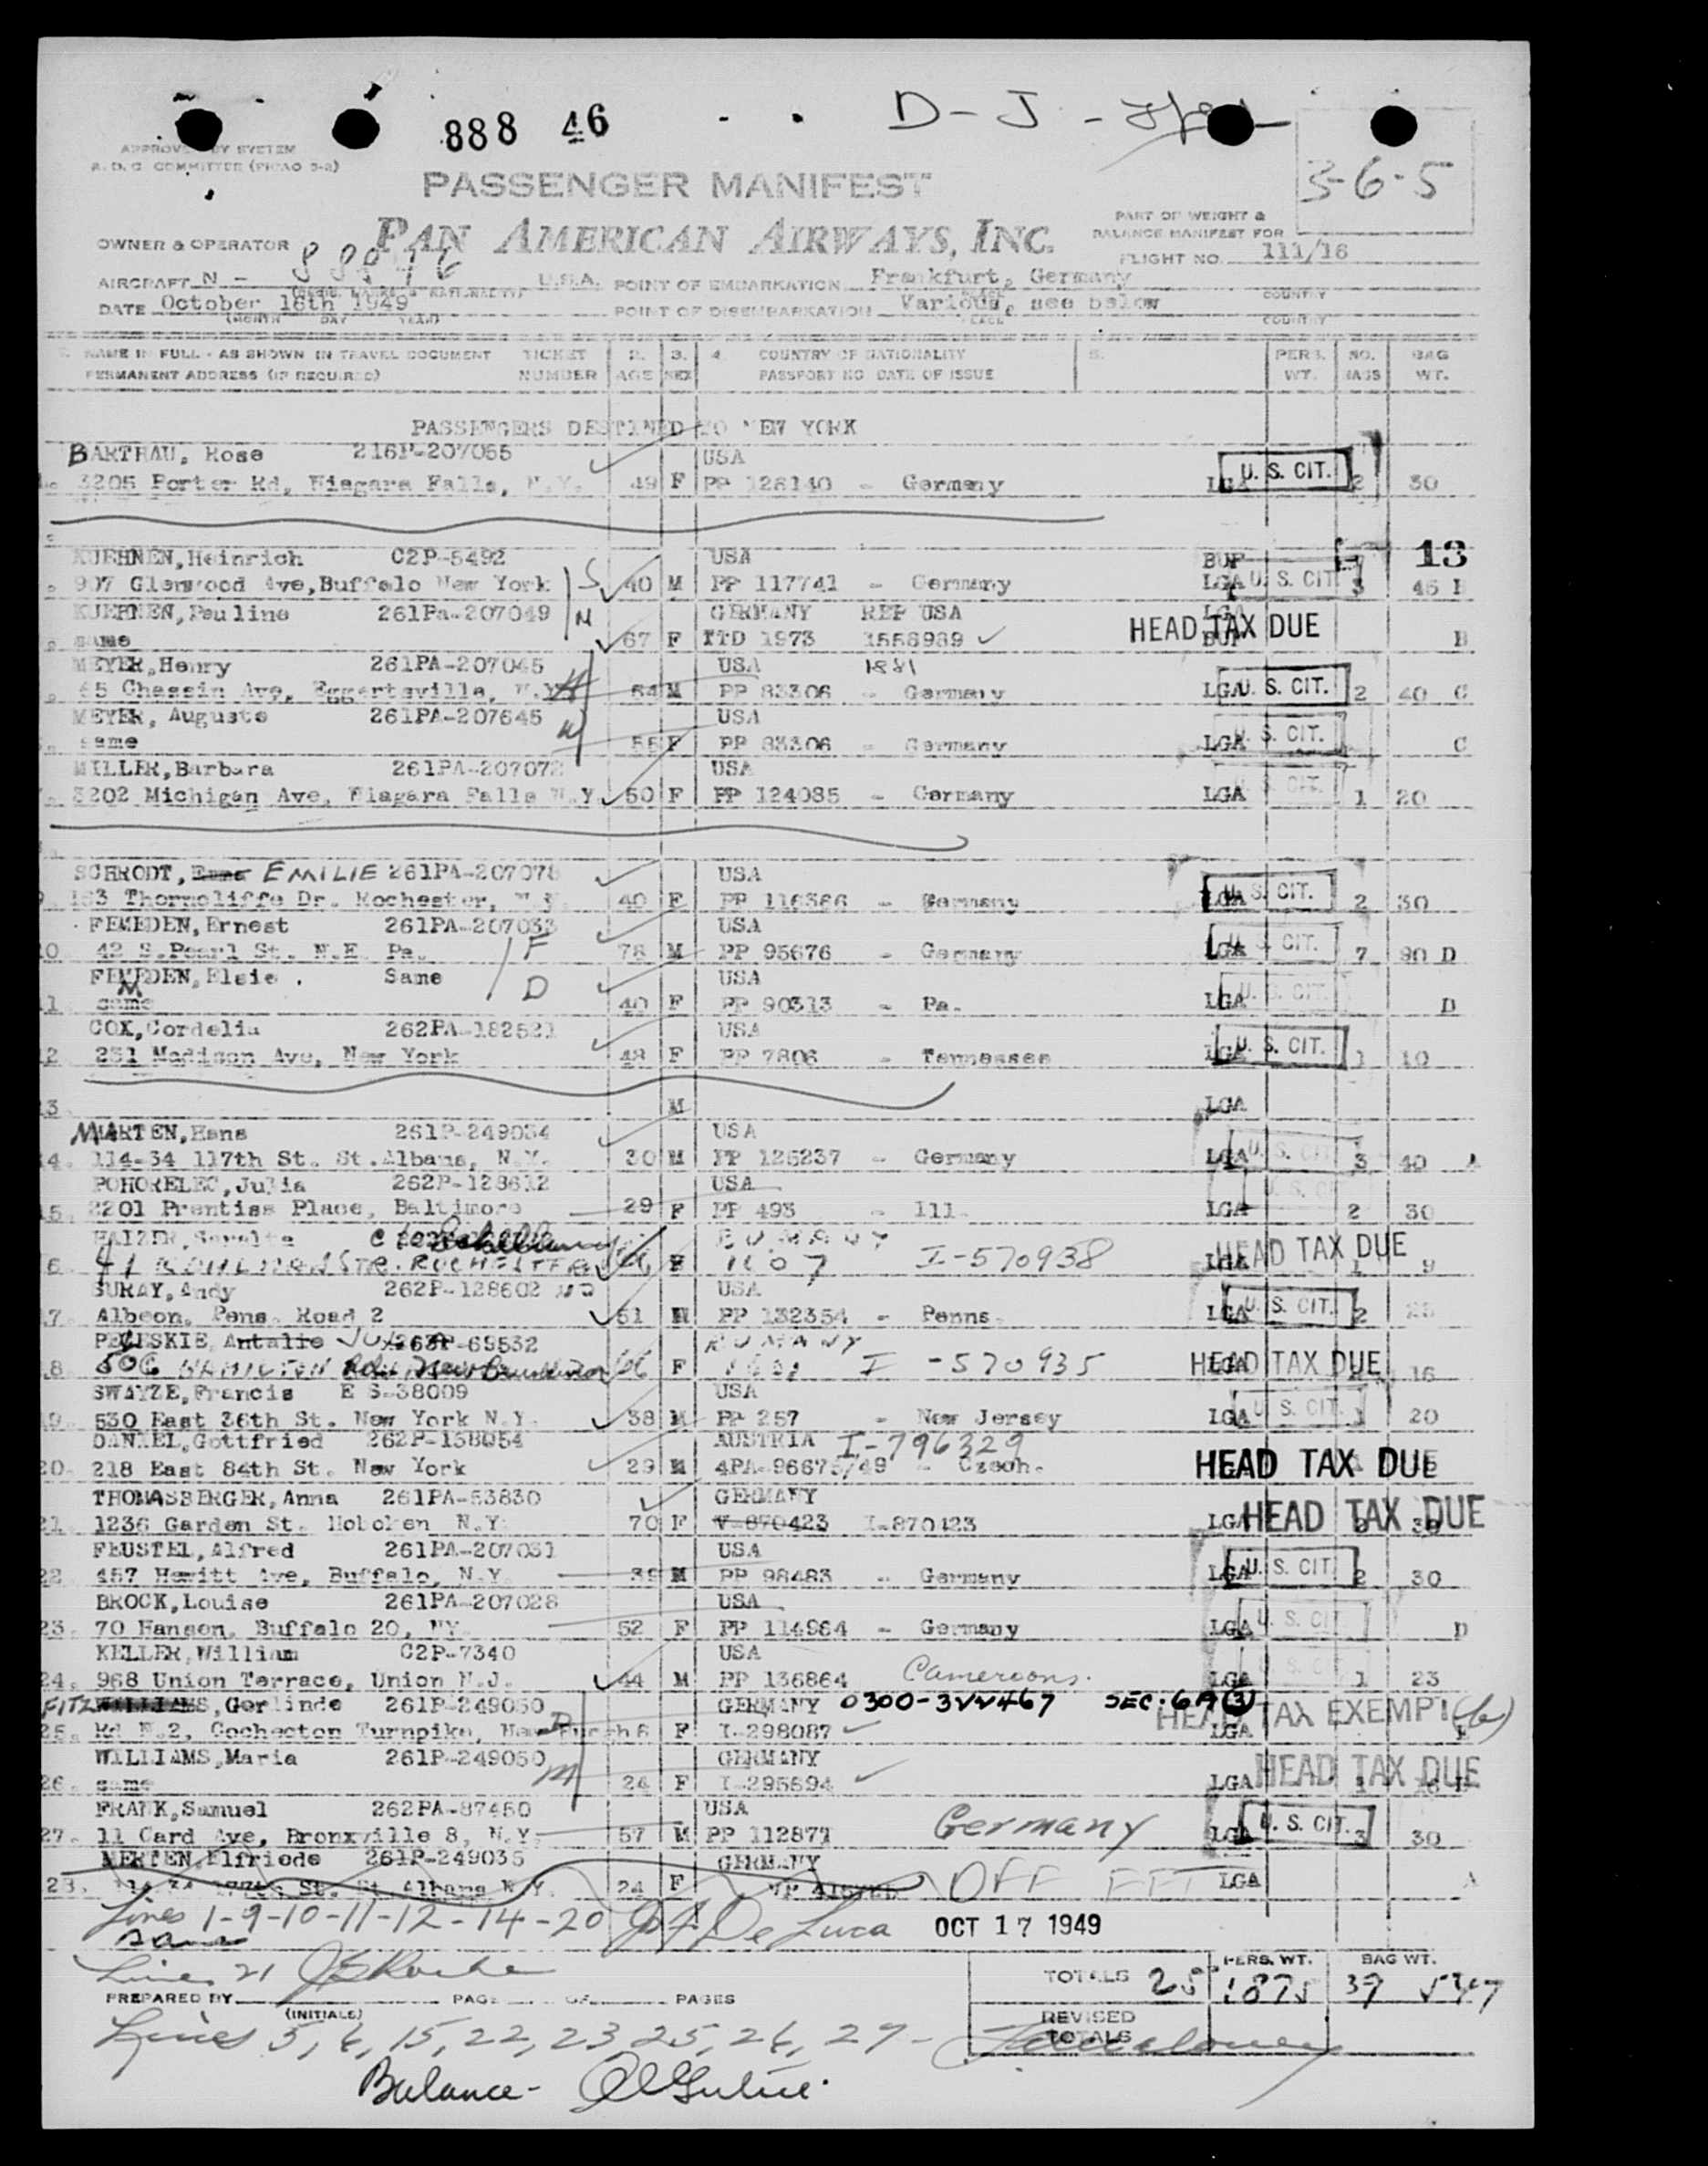 888 46 D - J -
3-6-5
APPROVED BY SYSTEM
R.D.C COMMITTEE (PICAO 3-2)
PASSENGER MANIFEST
PAN AMERICAN AIRWAYS, INC.
PART OF WEIGHT &
BALANCE MANIFEST FOR
OWNER & OPERATOR
FLIGHT NO. 111/16
AIRCRAFT N - 88846 U.S.A. POINT OF EMBARKATION Frankfurt, Germany
PLACE COUNTRY
DATE October 16th 1949 POINT OF DISEMBARKATION Various, see below
(MONTH DAY YEAR) PLACE COUNTRY
NAME IN FULL - AS SHOWN IN TRAVEL DOCUMENT TICKET 2. 3. 4. COUNTRY OF NATIONALITY 5. PERS. NO. BAG
PERMANENT ADDRESS (IF REQUIRED) NUMBER AGE SEX PASSPORT NO DATE OF ISSUE WT. BAGS WT.
PASSENGERS DESTINED TO NEW YORK
BARTHAU, Rose 216P-207055 USA
3205 Porter Rd, Niagara Falls, N.Y. 49 F PP 126140 - Germany LGA U. S. CIT. 2 30
KUEHNEN, Heinrich C2P-5492 USA BUF 13
907 Glenwood Ave, Buffalo New York S 40 M PP 117741 - Germany LGA U. S. CIT. 3 45 B
KUEHNEN, Pauline 261Pa-207049 N GERMANY REP USA LGA
same 67 F TTD 1973 1558989 HEAD TAX DUE BUF B
MEYER, Henry 261PA-207045 USA 1881
65 Chassin Ave, Eggertsville, N.Y. H 64 M PP 83306 - Germany LGA U. S. CIT. 2 40 C
MEYER, Auguste 261PA-207645 USA
same W 55 F PP 83306 - Germany LGA U. S. CIT. C
MILLER, Barbara 261PA-207072 USA
3202 Michigan Ave, Niagara Falls N.Y. 50 F PP 124085 - Germany LGA U. S. CIT. 1 20
SCHRODT, EMILIE 261PA-207078 USA
153 Thorncliffe Dr. Rochester, N.Y. 40 F PP 116386 - Germany LGA U. S. CIT. 2 30
FEMEDEN, Ernest 261PA-207033 USA
10 42 S. Pearl St. N.E. Pa. F 78 M PP 95676 - Germany LGA U. S. CIT. 7 90 D
FEMEDEN, Elsie . Same USA
11 same D 40 F PP 90313 - Pa. LGA U. S. CIT. D
COX, Cordelia 262PA-182521 USA
12. 231 Madison Ave, New York 48 F PP 7806 - Tennessee LGA U. S. CIT. 1 10
13. M LGA
MARTEN, Hans 261P-249034 USA
14. 114-34 117th St. St. Albans, N.Y. 30 M PP 125237 - Germany LGA U. S. CIT. 3 40 A
POHORELEC, Julia 262P-128612 USA
15. 2201 Prentiss Place, Baltimore 29 F PP 493 - Ill. LGA U. S. C 2 30
16. 41 STR. ROCHESTER F 1607 I-570938 LGA HEAD TAX DUE 1 9
SURAY, Andy 262P-128602 USA
17. Albeon, Pens. Road 2 51 M PP 132354 - Penns. LGA U. S. CIT. 2
PELESKIE, Antalie 263P-69532 RUMANY
18. 506 HAMILTON New Brunswick 66 F I-570935 LGA HEAD TAX DUE 16
SWAYZE, Francis E S-38009 USA
19. 530 East 36th St. New York N.Y. 38 M PP 257 - New Jersey LGA U. S. CIT. 1 20
DANKEL, Gottfried 262P-138054 AUSTRIA I-796329
20. 218 East 84th St. New York 29 M 4PA-96675/49 - Czech. HEAD TAX DUE
THOMASBERGER, Anna 261PA-53830 GERMANY
21. 1236 Garden St. Hoboken N.Y. 70 F V-870423 I-870423 LGA HEAD TAX DUE
FEUSTEL, Alfred 261PA-207031 USA
22. 457 Hewitt Ave, Buffalo, N.Y. 39 M PP 98483 - Germany LGA U. S. CIT. 2 30
BROCK, Louise 261PA-207028 USA
23. 70 Hanson, Buffalo 20, NY. 52 F PP 114964 - Germany LGA U. S. CIT. D
KELLER, William C2P-7340 USA
24. 968 Union Terrace, Union N.J. 44 M PP 136864 Cameroons. LGA 1 23
FITZWILLIAMS, Gerlinde 261P-249050 GERMANY 0300-322467 SEC. 6A(3)
25. Rd N.2, Cochecton Turnpike, Newburgh D 6 F I-298087 LGA HEAD TAX EXEMPT E
WILLIAMS, Maria 261P-249050 GERMANY
26. same M 24 F I-295694 LGA HEAD TAX DUE E
FRANK, Samuel 262PA-87450 USA
27. 11 Card Ave, Bronxville 8, N.Y. 57 M PP 112877 Germany LGA U. S. CIT. 3 30
MERTEN, Elfriede 261P-249035 GERMANY
28. St. St. Albans N.Y. 24 F OFF FFT LGA A
Lines 1-9-10-11-12-14-20 De Luca OCT 17 1949
same
Lines 21
TOTALS 25 PERS. WT. 1875 39 BAG WT. 547
PREPARED BY PAGE OF PAGES
(INITIALS)
REVISED
TOTALS
Lines 5, 6, 15, 22, 23 25, 26, 27 -
Balance -